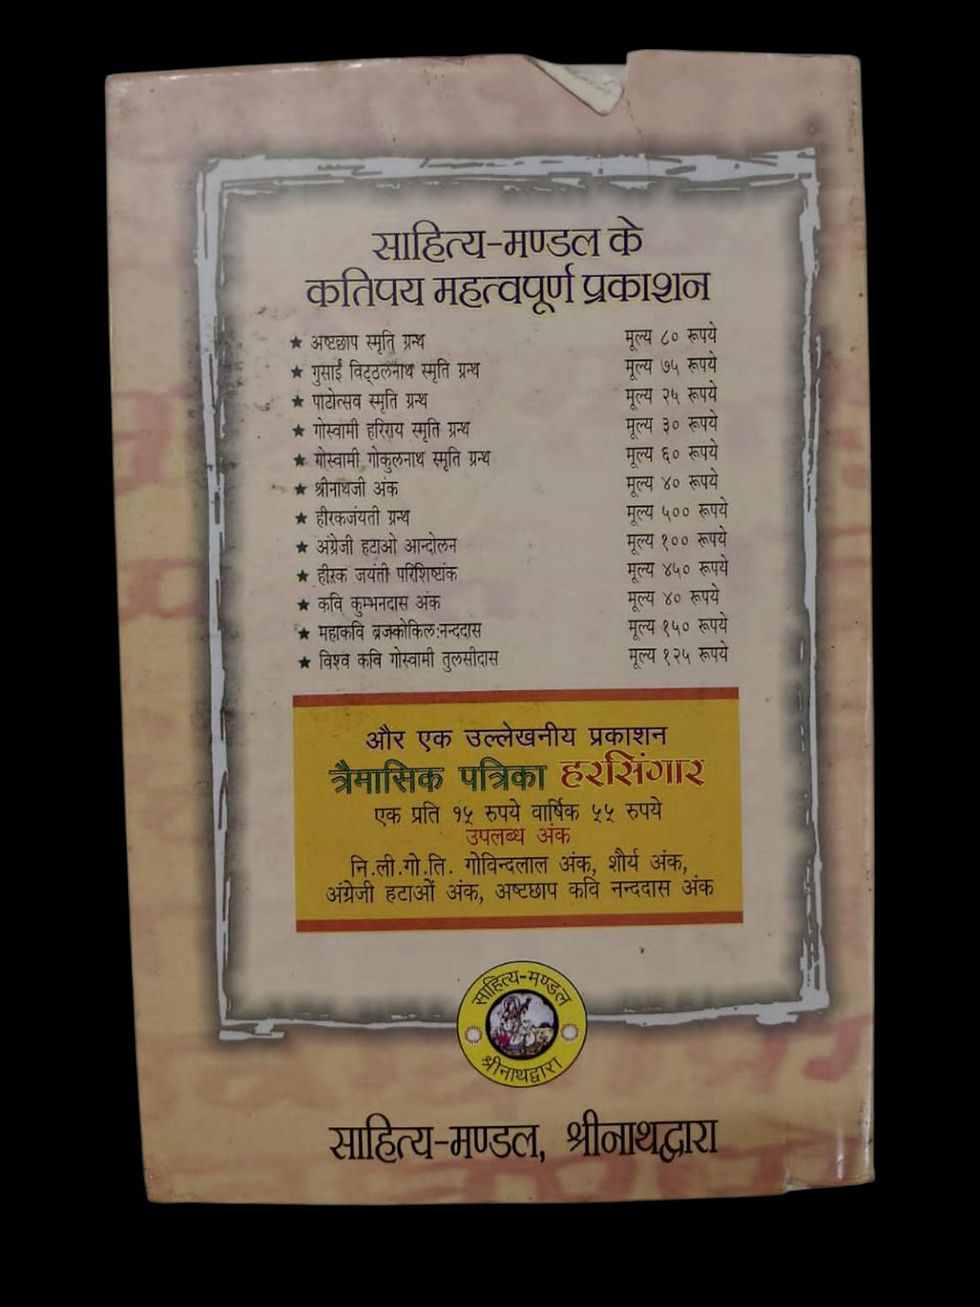 साहित्य-मण्डल के
कतिपय महत्वपूर्ण प्रकाशन
★ अष्टछाप स्मृति ग्रन्थ मूल्य ८० रूपये
★ गुसाईं विट्ठलनाथ स्मृति ग्रन्थ मूल्य ७५ रूपये
★ पाटोत्सव स्मृति ग्रन्थ मूल्य २५ रूपये
★ गोस्वामी हरिराय स्मृति ग्रन्थ मूल्य ३० रूपये
★ गोस्वामी गोकुलनाथ स्मृति ग्रन्थ मूल्य ६० रूपये
★ श्रीनाथजी अंक मूल्य ४० रूपये
★ हीरकजंयती ग्रन्थ मूल्य ५०० रूपये
★ अंग्रेजी हटाओ आन्दोलन मूल्य १०० रूपये
★ हीरक जयंती परिशिष्टांक मूल्य ४५० रूपये
★ कवि कुम्भनदास अंक मूल्य ४० रूपये
★ महाकवि ब्रजकोकिल:नन्ददास मूल्य १५० रूपये
★ विश्व कवि गोस्वामी तुलसीदास मूल्य १२५ रूपये
और एक उल्लेखनीय प्रकाशन
त्रैमासिक पत्रिका हरसिंगार
एक प्रति १५ रुपये वार्षिक ५५ रुपये
उपलब्ध अंक
नि.ली.गो.ति. गोविन्दलाल अंक, शौर्य अंक,
अंग्रेजी हटाओं अंक, अष्टछाप कवि नन्ददास अंक
साहित्य-मण्डल
श्रीनाथद्वारा
साहित्य-मण्डल, श्रीनाथद्वारा